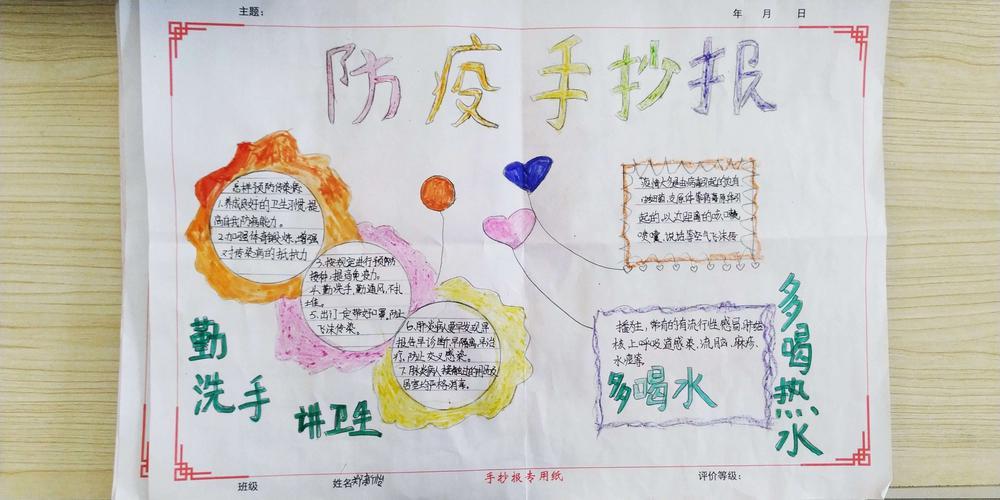 主题：
年 月 日
防疫手抄报
怎样预防传染病：
1.养成良好的卫生习惯，提
高自我防病能力。
2.加强体育锻炼，增强
对传染病的抵抗力
3.按规定进行预防
接种，提高免疫力。
4.勤洗手，勤通风，不扎
堆。
5.出门一定带好口罩，防止
飞沫传染。
6.肺炎病人要早发现，早
报告，早诊断，早隔离，早治
疗，防止交叉感染。
7.肺炎病人接触过的用品及
居室均严格消毒。
疫情大多是由病毒引起的也有
起的，以近距离的咳嗽，
喷嚏，说话等空气飞沫传
播为主，常有的有流行性感冒，肺结
核上呼吸道感染，流脑，麻疹，
水痘等。
多喝水
多喝热水
勤
洗手
讲卫生
班级
姓名
手抄报专用纸
评价等级：